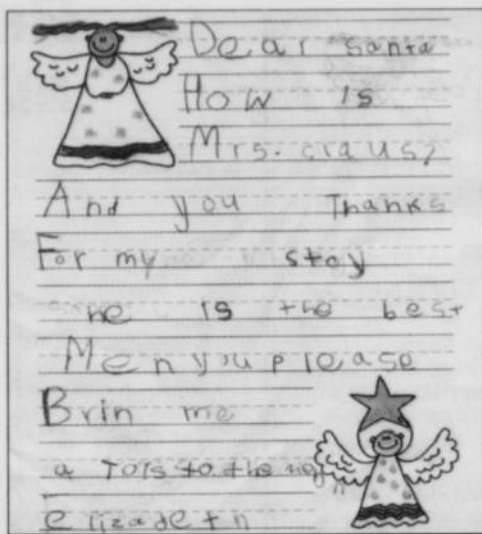 Dear santa
How is
Mrs. craus?
And you Thanks
For my stay
he is the best
Men you please
Brin me
a Tois to the
elizadeth